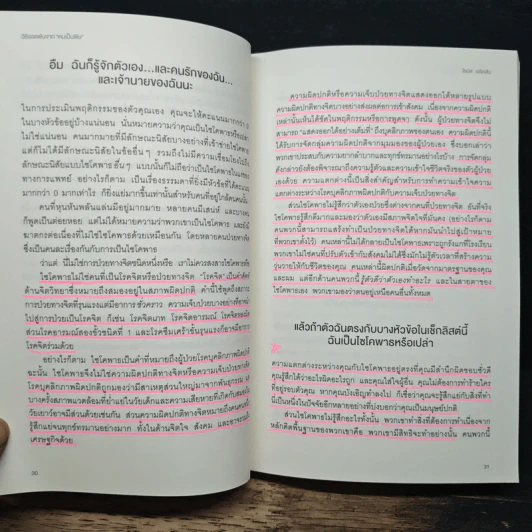 อืม ฉันก็รู้จักตัวเอง...และคนรักของฉัน...
และเจ้านายของฉันนะ
ในการประเมินพฤติกรรมของตัวคุณเอง คุณจะให้คะแนนมากกว่า
ในบางหัวข้ออยู่บ้างแน่นอน นั่นหมายความว่าคุณเป็นไซโคพาธหรือเปล่า
ไม่ใช่แน่นอน คนมากมายที่มีลักษณะนิสัยบางอย่างที่เข้าข่ายไซโคพาธ
แต่ก็ไม่ได้มีลักษณะนิสัยในข้ออื่นๆ รวมถึงไม่มีความเชื่อมโยงไปถึง
ลักษณะนิสัยแบบไซโคพาธอื่นๆ แบบนั้นก็ไม่ถือว่าเป็นไซโคพาธใน
ทางการแพทย์ อย่างไรก็ตาม เป็นเรื่องธรรมดาที่ยิ่งมีหัวข้อที่ได้คะแนน
มากกว่า 0 มากเท่าไร ก็ยิ่งแย่มากขึ้นเท่านั้นสำหรับคนที่อยู่ใกล้คนนั้น
คนที่หุนหันพลันแล่นมีอยู่มากมาย หลายคนมีเสน่ห์ และบาง
ก็พูดเป็นต่อยหอย แต่ไม่ได้หมายความว่าพวกเขาเป็นไซโคพาธ และยัง
ฆาตกรต่อเนื่องที่ไม่ใช่ไซโคพาธด้วยเหมือนกัน โดยหลายคนป่วยทางจิต
ซึ่งเป็นคนละเรื่องกันกับการเป็นไซโคพาธ
ว่าแต่ นี่ไม่ใช่การป่วยทางจิตชนิดหนึ่งหรือ เราไม่ควรสงสารไซโคพาธ
ไซโคพาธไม่ใช่คนที่เป็นโรคจิตหรือป่วยทางจิต "โรคจิต" เป็นคำศัพท์
ด้านจิตวิทยาซึ่งหมายถึงสมองอยู่ในสภาพผิดปกติ คำนี้ใช้พูดถึงสภาวะ
การป่วยทางจิตที่รุนแรงแต่มีอาการ ชั่วคราว ความเจ็บป่วยบางอย่างที่อาจนำ
ไปสู่การป่วยเป็นโรคจิต ก็เช่น โรคจิตเภท โรคจิตอารมณ์ โรคจิตหลงผิด
ส่วนโรคอารมณ์สองขั้วชนิดที่ 1 และโรคซึมเศร้าขั้นรุนแรงก็อาจมีอาการ
โรคจิตร่วมด้วย
อย่างไรก็ตาม ไซโคพาธเป็นคำที่หมายถึงผู้ป่วยโรคบุคลิกภาพผิดปกติ
ฉะนั้น ไซโคพาธจึงไม่ใช่ความผิดปกติทางจิตหรือความเจ็บป่วยทางจิต
โรคบุคลิกภาพผิดปกติถูกมองว่ามีสาเหตุส่วนใหญ่มาจากพันธุกรรม
บางครั้งสภาพแวดล้อมที่ย่ำแย่ในวัยเด็กและความเสียหายที่เกิดกับสมองใน
วัยเยาว์อาจมีส่วนด้วยเช่นกัน ส่วนความผิดปกติทางจิตหมายถึงคน
รู้สึกแย่จนทุกข์ทรมานอย่างมาก ทั้งในด้านจิตใจ สังคม และอาจรวมถึง
เศรษฐกิจด้วย
30
ความผิดปกติหรือความเจ็บป่วยทางจิตแสดงออกได้หลายรูปแบบ
ความผิดปกติทางจิตบางอย่างส่งผลต่อการเข้าสังคม เนื่องจากความผิดปกติ
เหล่านั้นเห็นได้ชัดในพฤติกรรมหรือการพูดจา ดังนั้น ผู้ป่วยทางจิตจึงไม่
สามารถ "แสดงออกได้อย่างเต็มที่" ถึงบุคลิกภาพของตนเอง ความผิดปกตินี้
ได้รับการจัดกลุ่มความผิดปกติจากมุมมองของผู้ป่วยเอง ซึ่งบอกเล่าว่า
พวกเขาประสบกับความยากลำบากและทุกข์ทรมานอย่างไรบ้าง การจัดกลุ่ม
ดังกล่าวยังต้องพิจารณาถึงความรู้ตัวและความเข้าใจชีวิตจริงของตัวผู้ป่วย
เองด้วย ความแตกต่างนี้เป็นสิ่งสำคัญสำหรับการทำความเข้าใจความ
แตกต่างระหว่างโรคบุคลิกภาพผิดปกติกับการป่วยทางจิต
ส่วนไซโคพาธไม่รู้สึกว่าตัวเองป่วยซึ่งต่างจากคนที่ป่วยทางจิต อันที่จริง
ไซโคพาธรู้สึกดีมากและมองว่าตัวเองมีสภาพจิตใจที่มั่นคง (อย่างไรก็ตาม
คนพวกนี้สามารถสร้างห้วงที่เป็นป่วยทางจิตได้หากมันนำไปสู่เป้าหมาย
ที่พวกเขาตั้งไว้) คนเหล่านี้ไม่ได้กลายเป็นไซโคพาธเพราะถูกรังแกที่โรงเรียน
พวกเขาไม่ใช่คนที่ปรับตัวเข้ากับสังคมไม่ได้ซึ่งมักไม่รู้ตัวเวลาที่สร้างความ
วุ่นวายให้กับชีวิตของคุณ คนเหล่านี้ผิดปกติเมื่อวัดจากมาตรฐานของคุณ
และผม แต่อีกด้านคนพวกนี้ รู้ดีว่า ตัวเองทำอะไร และในสายตาของ
ไซโคพาธเอง พวกเขามองว่าตนอยู่เหนือคนอื่นทั้งหมด
แล้วถ้าตัวฉันตรงกับบางหัวข้อในเช็กลิสต์นี้
ฉันเป็นไซโคพาธหรือเปล่า
ความแตกต่างระหว่างคุณกับไซโคพาธอยู่ตรงที่คุณมีสำนึกผิดชอบชั่วดี
คุณรู้สึกได้ว่าอะไรผิดอะไรถูก และคุณใส่ใจผู้อื่น คุณไม่ต้องการทำร้ายใคร
ที่อยู่รอบตัวคุณ หากคุณบังเอิญทำลงไป ก็เชื่อว่าคุณจะรู้สึกแย่กับสิ่งที่ทำ
นี่เป็นหนึ่งในปัจจัยอีกหลายอย่างที่บ่งบอกว่าคุณเป็นมนุษย์ปกติ
ส่วนไซโคพาธไม่รู้สึกอะไรทั้งนั้น พวกเขาทำสิ่งที่ต้องการทำเนื่องจาก
หลักคิดพื้นฐานของพวกเขาคือ พวกเขามีสิทธิจะทำอย่างนั้น คนพวกนี้
31